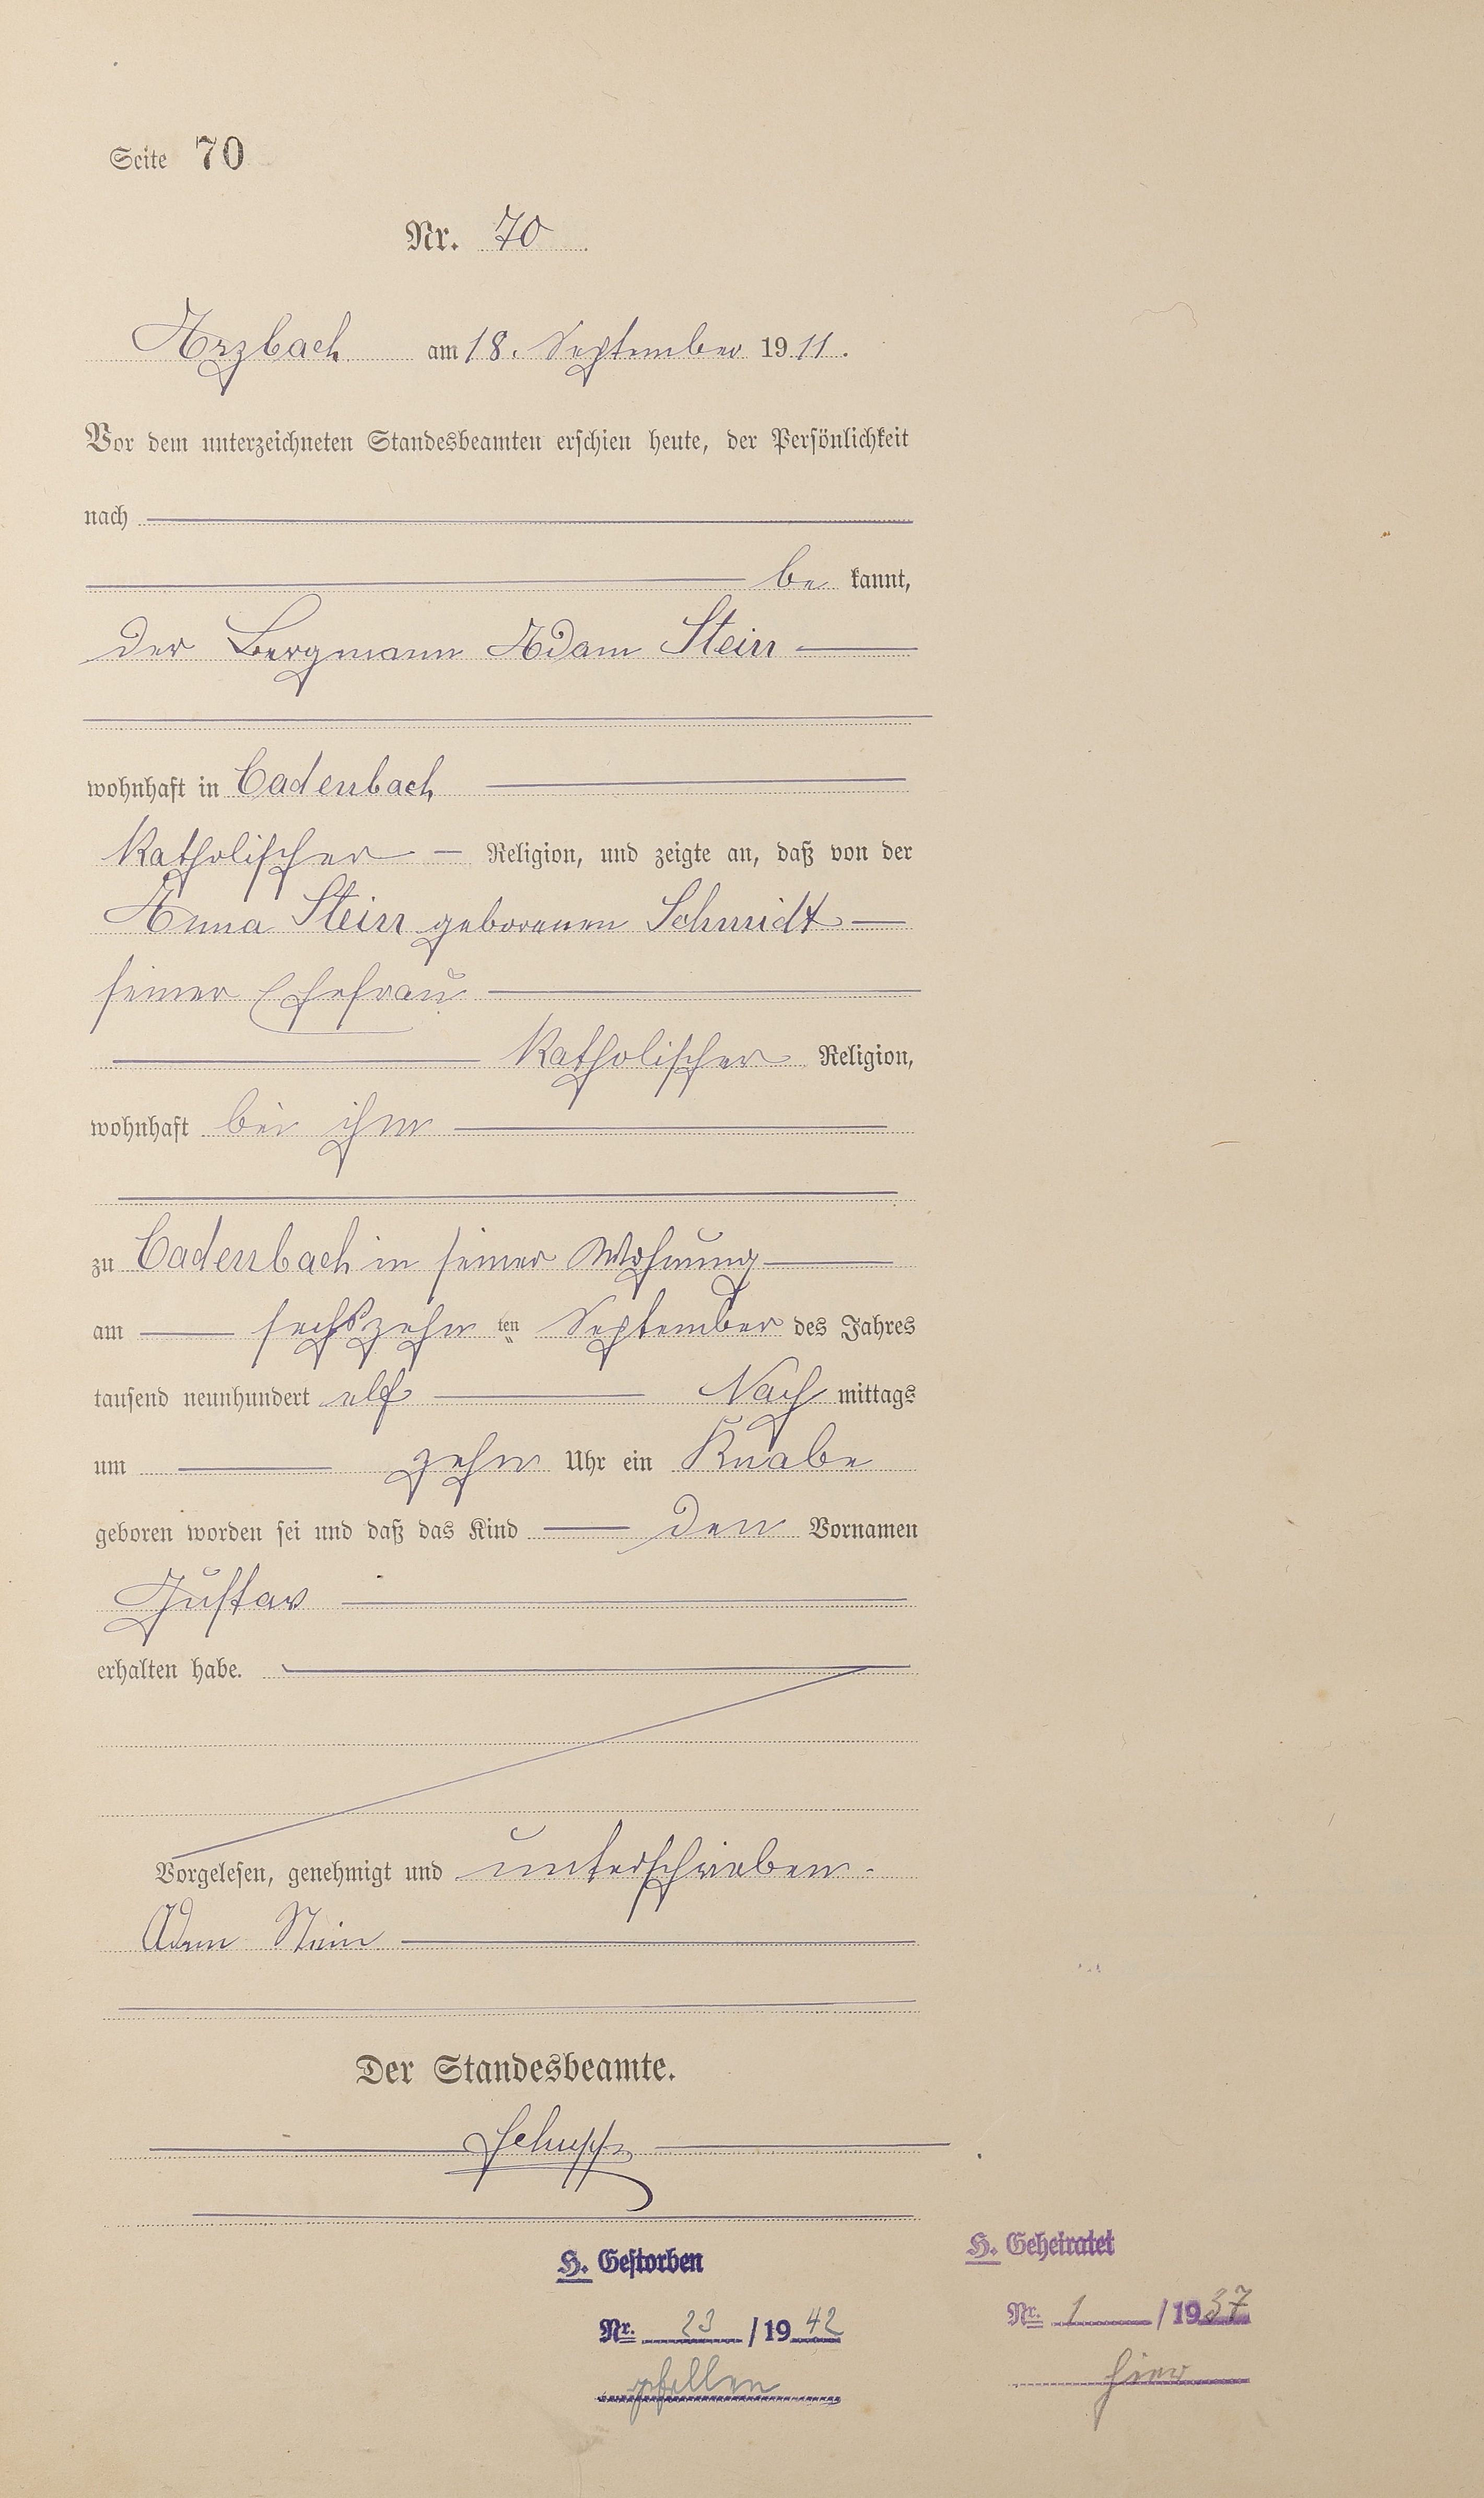 Seite 70
Nr. 70
Arzbach am 18. September 1911.
Vor dem unterzeichneten Standesbeamten erschien heute, der Persönlichkeit
nach
be kannt,
der Bergmann Adam Stein
wohnhaft in Cadenbach
katholischer Religion, und zeigte an, daß von der
Anna Stein geborenen Schmidt
seiner Ehefrau
katholischer Religion,
wohnhaft bei ihm
zu Cadenbach in seiner Wohnung
am sechszehn ten September des Jahres
tausend neunhundert elf Nach mittags
um zehn Uhr ein Knabe
geboren worden sei und daß das Kind den Vornamen
Gustav
erhalten habe.
Vorgelesen, genehmigt und unterschrieben.
Adam Stein
Der Standesbeamte.
Schupp
H. Gestorben
Nr. 23 / 1942
gefallen
H. Geheiratet
Nr. 1 / 1937
hier